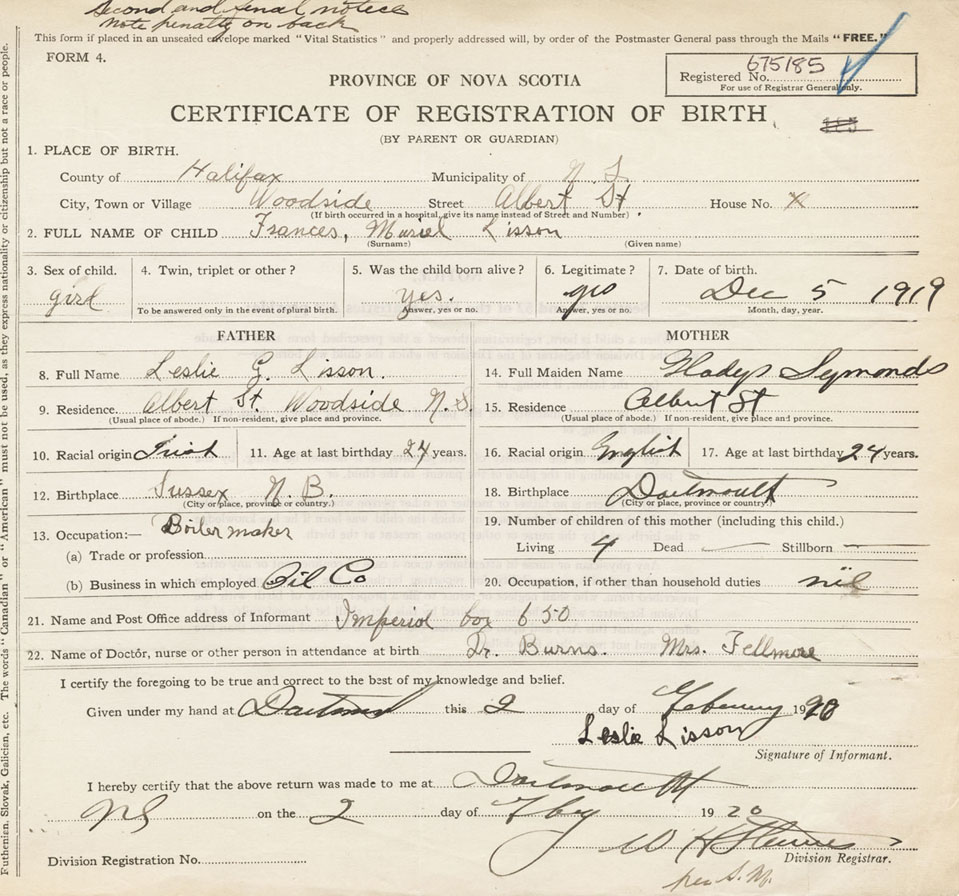 Second and final notice
note penalty on back
This form if placed in an unsealed envelope marked "Vital Statistics" and properly addressed will, by order of the Postmaster General pass through the Mails "FREE."
FORM 4.
675185
Registered No.
For use of Registrar General only.
PROVINCE OF NOVA SCOTIA
CERTIFICATE OF REGISTRATION OF BIRTH
(BY PARENT OR GUARDIAN)
1. PLACE OF BIRTH.
County of Halifax Municipality of N. S.
City, Town or Village Woodside Street Albert St House No. X
(If birth occurred in a hospital, give its name instead of Street and Number)
2. FULL NAME OF CHILD Frances, Muriel Lisson
(Surname) (Given name)
3. Sex of child. 4. Twin, triplet or other? 5. Was the child born alive? 6. Legitimate? 7. Date of birth.
girl yes. Dec 5 1919
To be answered only in the event of plural birth. Answer, yes or no. Answer, yes or no. Month, day, year.
FATHER MOTHER
8. Full Name Leslie G. Lisson. 14. Full Maiden Name Gladys Symonds
9. Residence Albert St. Woodside N.S. 15. Residence Albert St
(Usual place of abode.) If non-resident, give place and province. (Usual place of abode.) If non-resident, give place and province.
10. Racial origin Irish 11. Age at last birthday 24 years. 16. Racial origin English 17. Age at last birthday 24 years.
12. Birthplace Sussex N. B. 18. Birthplace Dartmouth
(City or place, province or country.) (City or place, province or country.)
13. Occupation:— Boiler maker 19. Number of children of this mother (including this child.)
(a) Trade or profession Living 4 Dead — Stillborn —
(b) Business in which employed Oil Co 20. Occupation, if other than household duties nil
21. Name and Post Office address of Informant Imperial box 650
22. Name of Doctor, nurse or other person in attendance at birth Dr. Burns. Mrs. Fellmore
I certify the foregoing to be true and correct to the best of my knowledge and belief.
Given under my hand at this 2 day of February 1920
Leslie Lisson
Signature of Informant.
I hereby certify that the above return was made to me at Dartmouth
NS on the 2 day of Feby 1920
Division Registrar.
Division Registration No.
Ruthenian, Slovak, Galician, etc. The words "Canadian" or "American" must not be used, as they express nationality or citizenship but not a race or people.